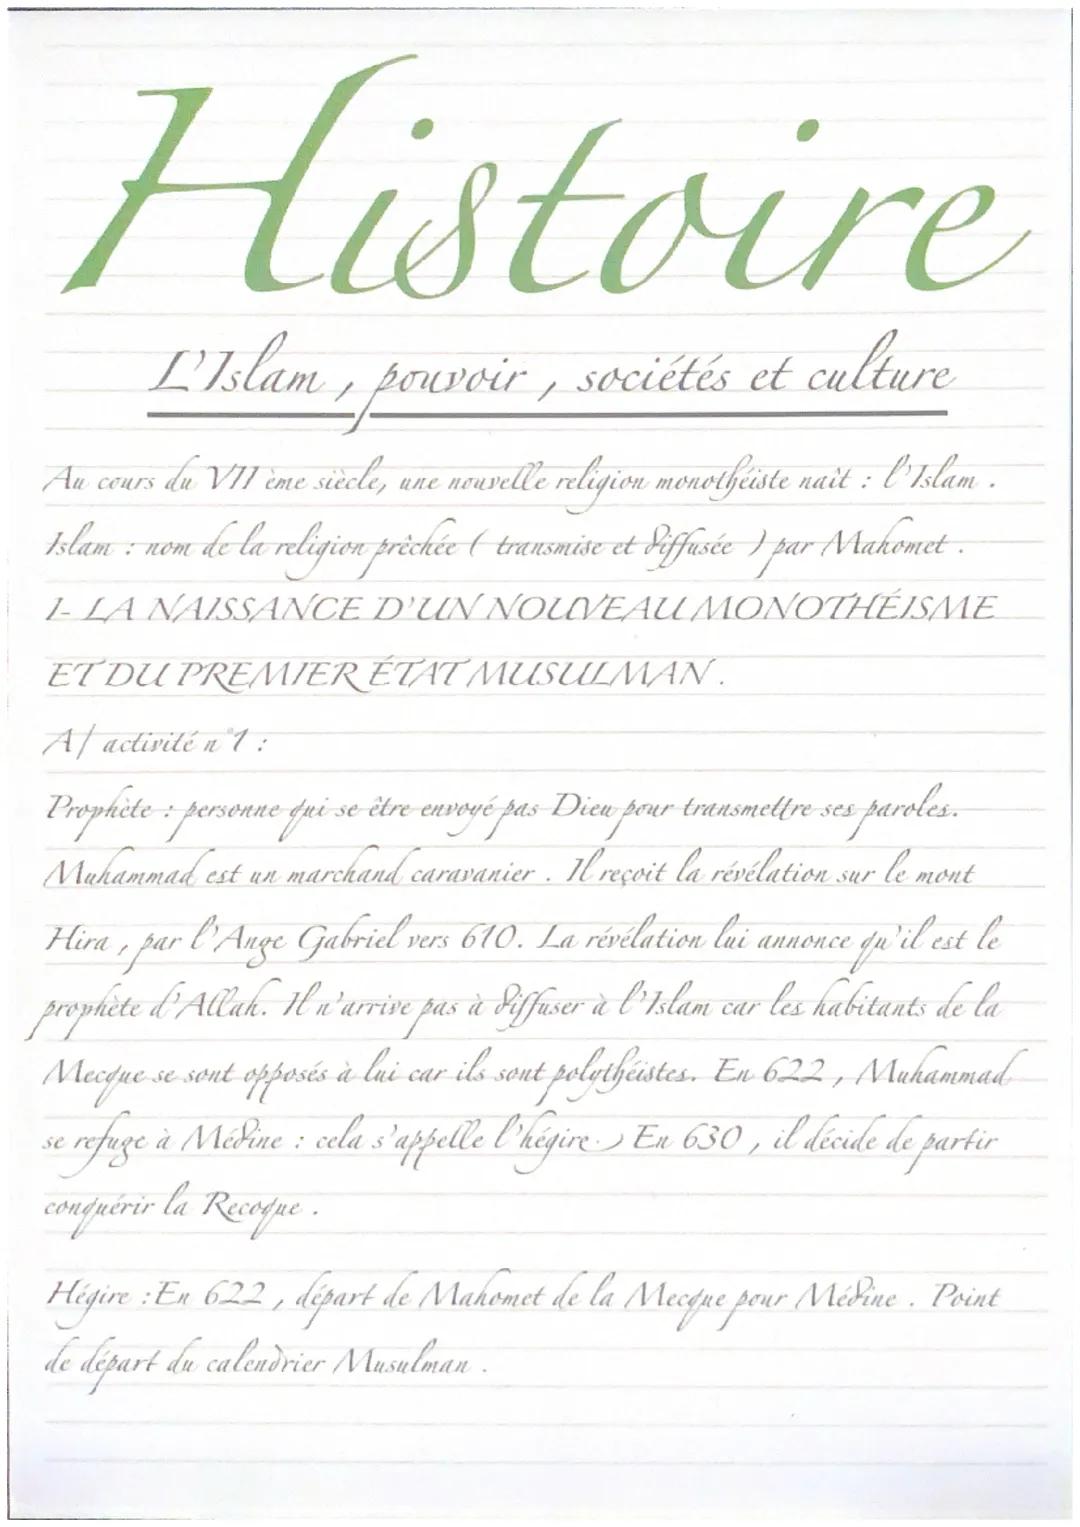 Histoire
L'Islam, pouvoir, sociétés et culture
Au cours du VII ème siècle, une nouvelle religion monothéiste naît : l'Islam .
Islam : nom de la religion prêchée ( transmise et diffusée ) par Mahomet .
I- LA NAISSANCE D'UN NOUVEAU MONOTHÉISME
ET DU PREMIER ÉTAT MUSULMAN .
A/ activité n°1 :
Prophète : personne qui se être envoyé pas Dieu pour transmettre ses paroles.
Muhammad est un marchand caravanier . Il reçoit la révélation sur le mont
Hira , par l'Ange Gabriel vers 610. La révélation lui annonce qu'il est le
prophète d'Allah. Il n'arrive pas à diffuser à l'Islam car les habitants de la
Mecque se sont opposés à lui car ils sont polythéistes. En 622 , Muhammad
se refuge à Médine : cela s'appelle l'hégire . ) En 630 , il décide de partir
conquérir la Recoque .
Hégire : En 622 , départ de Mahomet de la Mecque pour Médine . Point
de départ du calendrier Musulman .